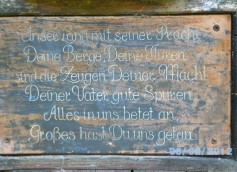 Unser Land mit seiner Pracht
Deine Berge, Deine Fluren
sind die Zeugen Deiner Macht
Deiner Vater gute Spuren
Alles in uns betet an,
Großes hast Du uns getan
08/08/2012